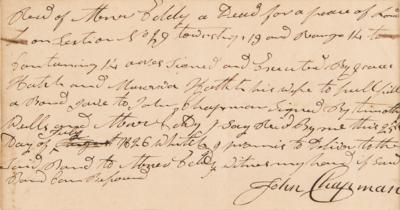 Recd of Abner Eddy a Deed for a peace of Land
on Section No 19 township 19 and Range 14 to
Containing 14 acres Signed and Executed By
Hatch and Hatch his wife to full fill
a Bond Gave to John Chapman Signed By timothy
and Abner Eddy I Say Recd By me this 25th
Day of August July 1826 Which I promis to Deliver to the
Said Bond to Abner Eddy Witness my hand if Said
Bond Can Be found
John Chapman